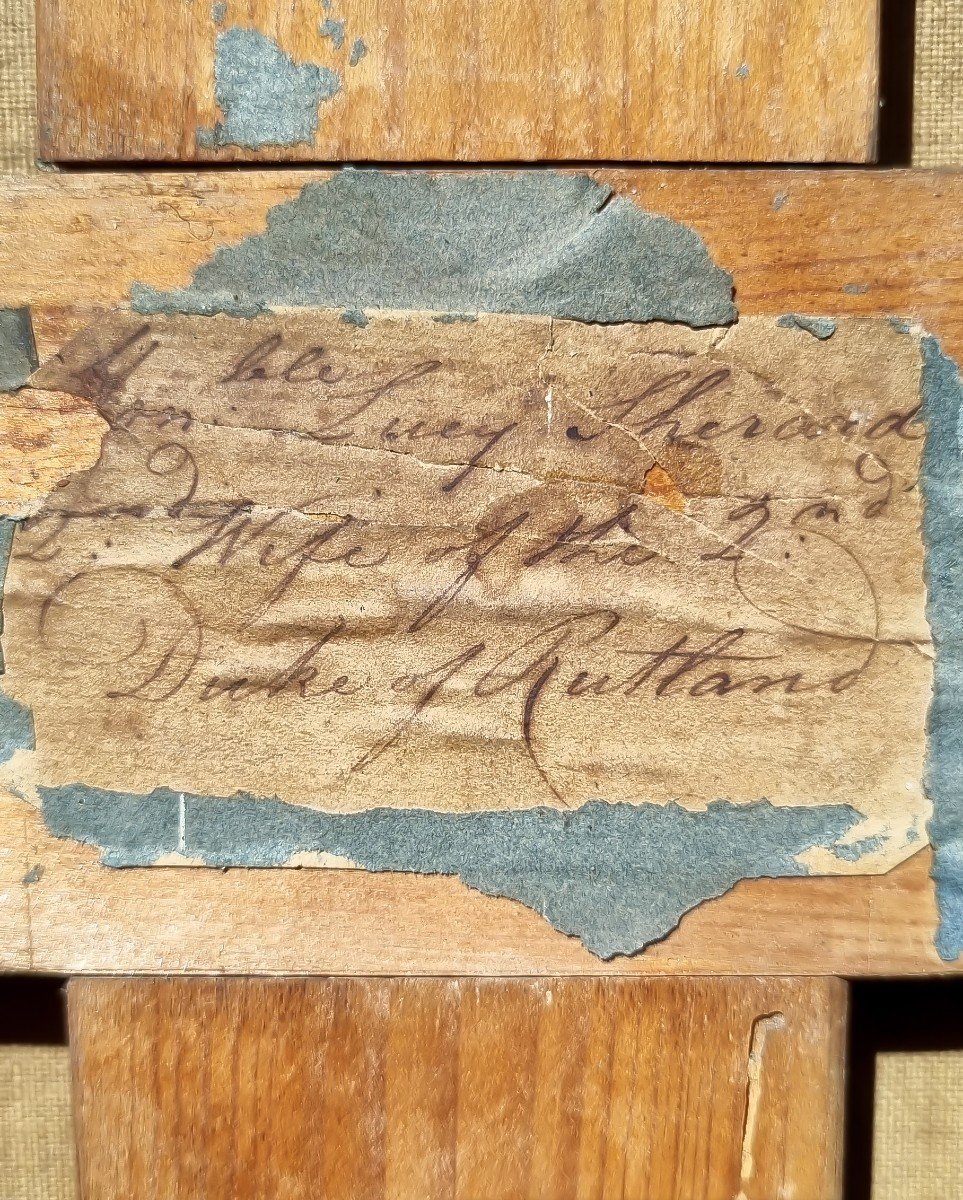 Hon.ble Lucy Sherard
2.nd Wife of the 2.nd
Duke of Rutland